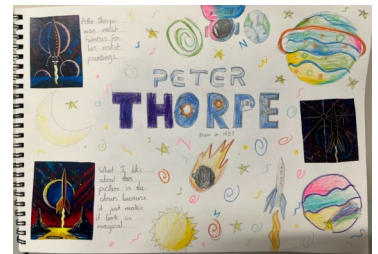 Peter Thorpe
was most
famous for
his rocket
paintings.
PETER
THORPE
Born in 1957
What I like
about this
picture is the
colours because
it just makes
it look so
magical.